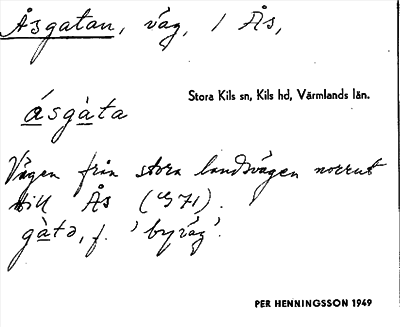 Åsgatan, väg, i Ås,
Stora Kils sn, Kils hd, Värmlands län.
ásgàta
Vägen från stora landsvägen norrut
till Ås (971).
gàtə, f. 'byväg'.
PER HENNINGSSON 1949